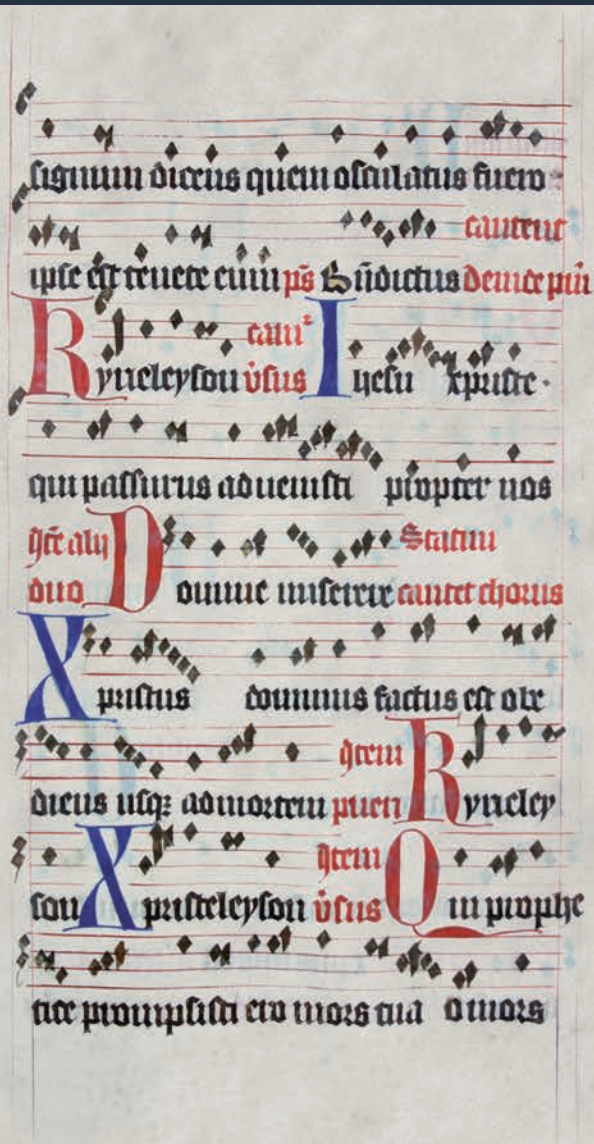 signum dicens quem osculatus fuero
ipse est tenete eum ps Bn̄dictus cantent deinde pu̅i
Kyrieleyson v̅sus Ihesu xpriste.
qui passurus advenisti propter nos
Itē alij duo Domine miserere Statim cantet chorus
Xpristus dominus factus est obe
diens usqꝫ ad mortem Item pueri Kyrieley
son Xpristeleyson Item v̅sus Qui prophe
tice prompsisti ero mors tua o mors